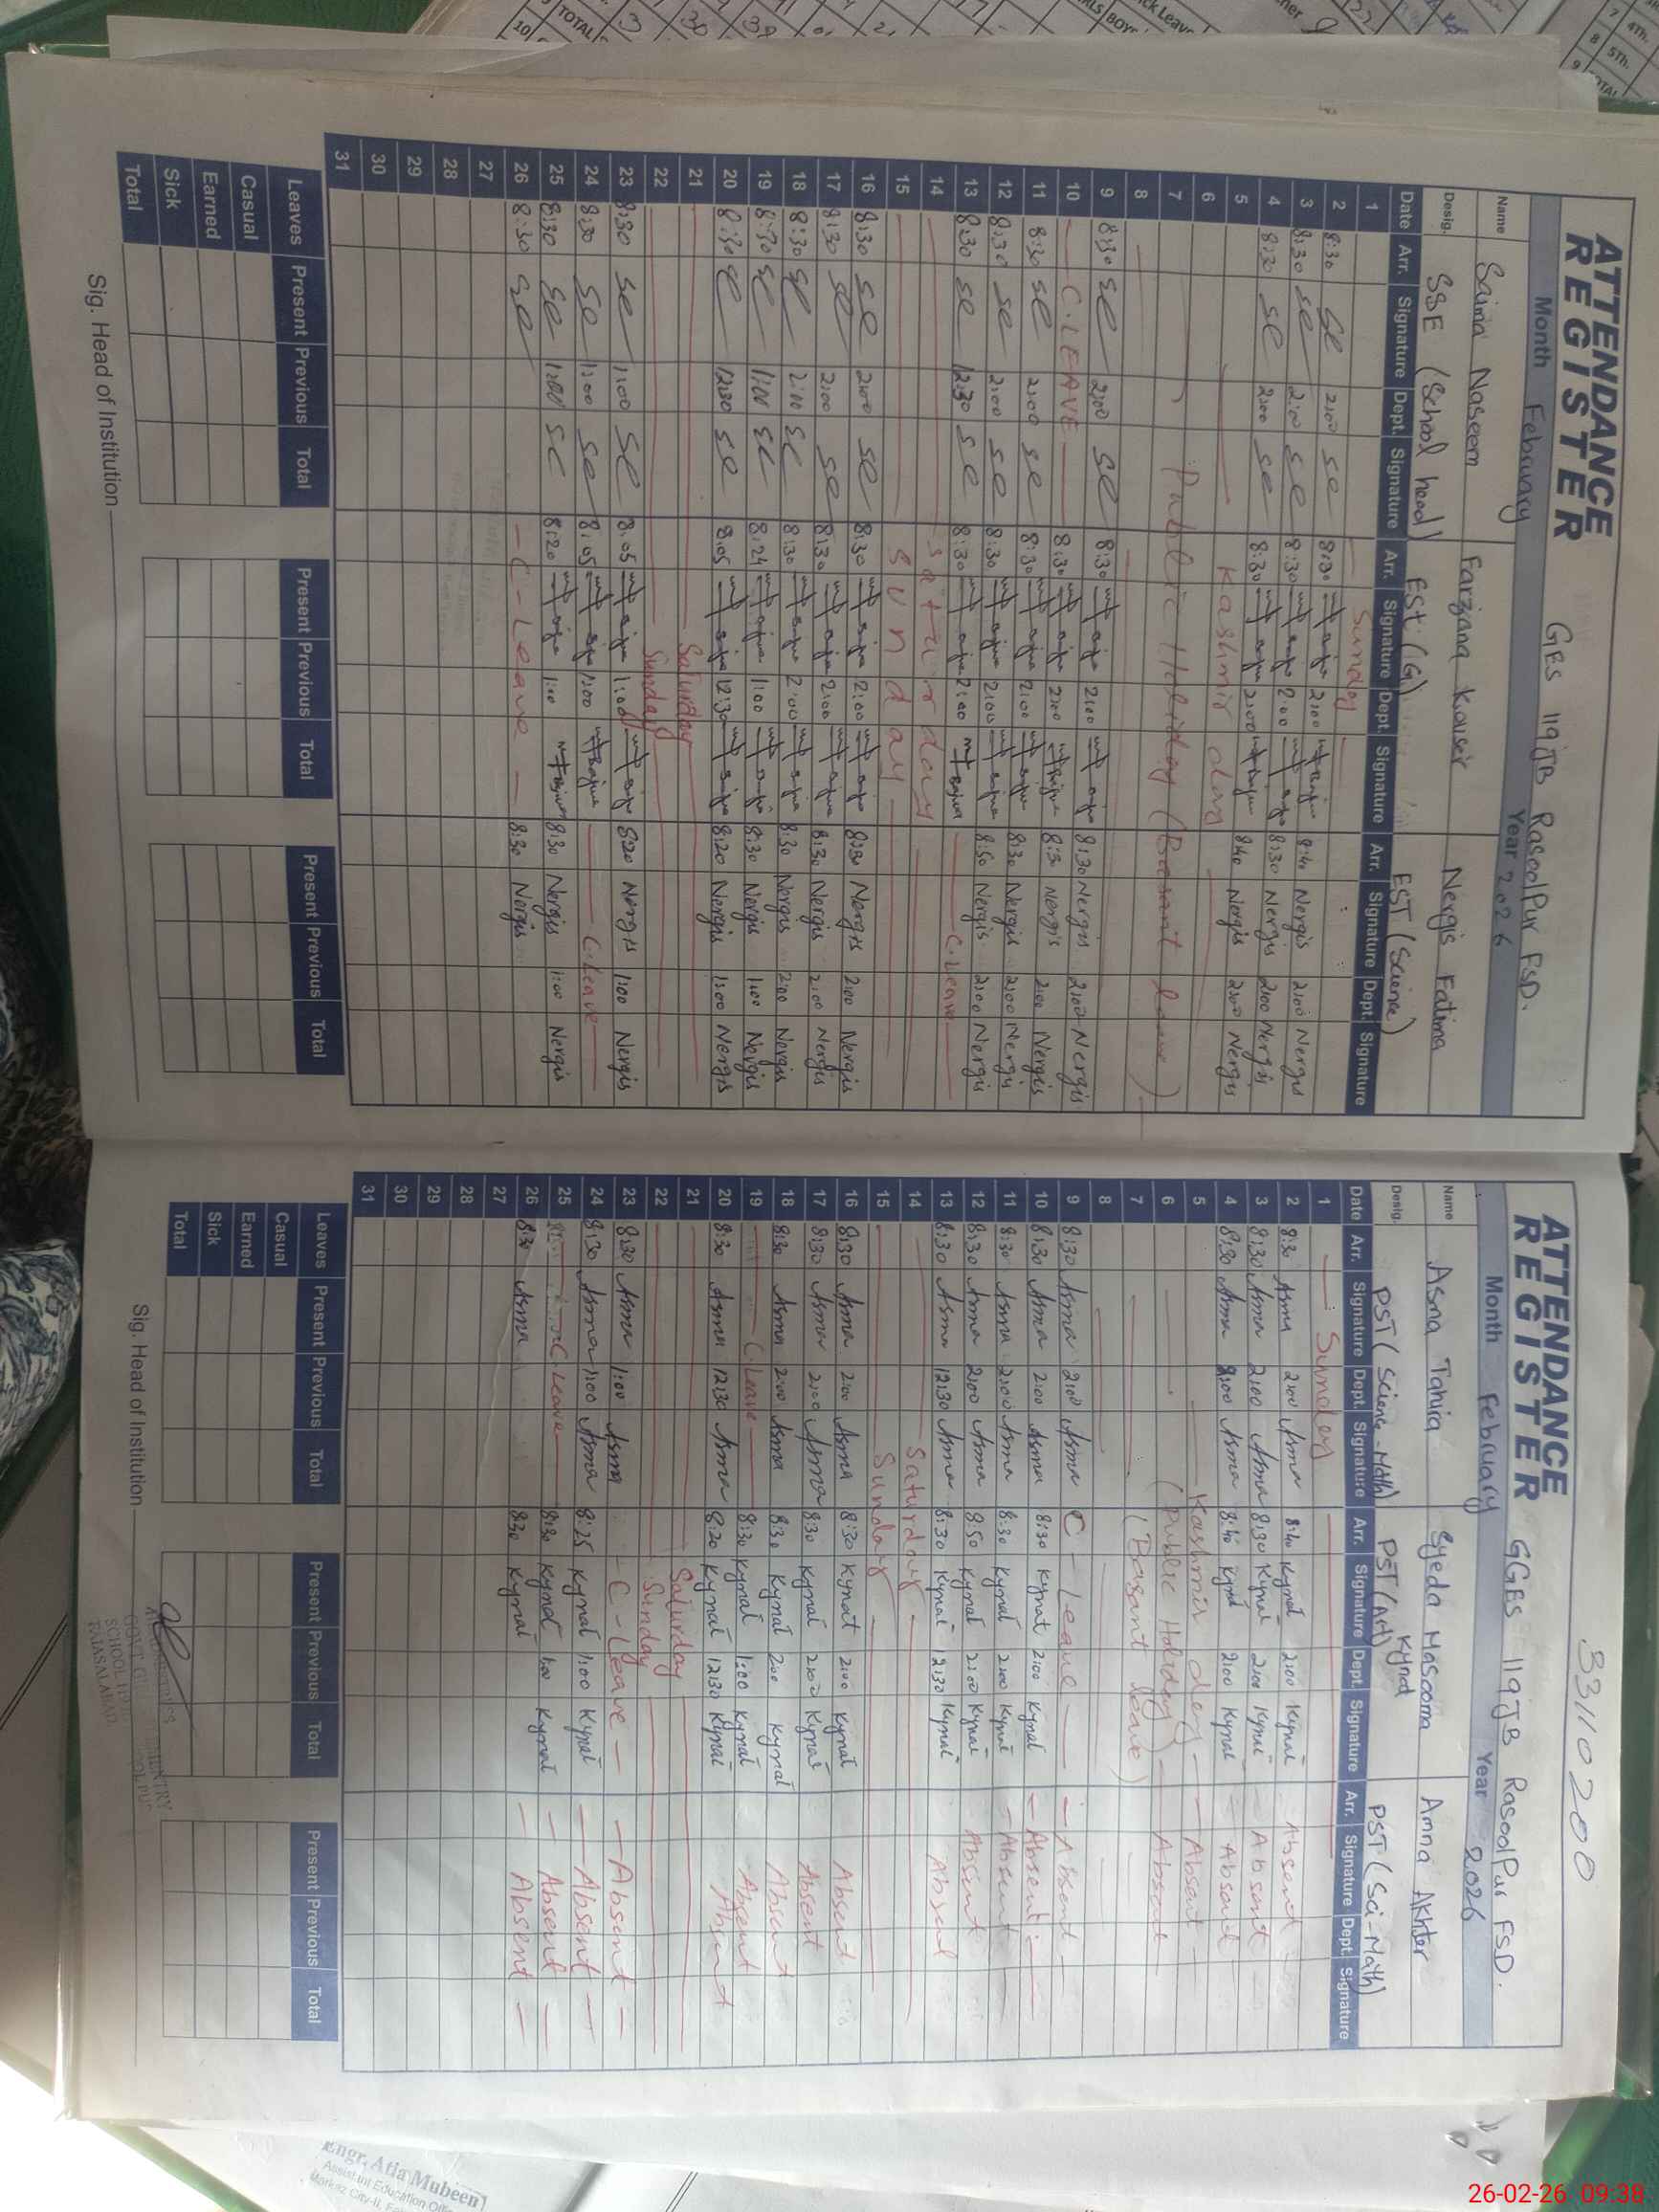 ATTENDANCE
REGISTER
GES 119 JB RasoolPur FSD.
Month February Year 2026
Name Saima Naseem Farzana Kousir Nergis Fatima
Desig. SSE (School head) EST (G) EST (Science)
Date Arr. Signature Dept. Signature Arr. Signature Dept. Signature Arr. Signature Dept. Signature
1 Sunday
2 8:30 Se 2:00 Se 8:30 2:00 8:40 Nergis 2:00 Nergis
3 8:30 Se 2:00 Se 8:30 2:00 8:30 Nergis 2:00 Nergis
4 8:30 Se 2:00 Se 8:30 2:00 8:40 Nergis 2:00 Nergis
5 Kashmir day
6
7 Public Holiday (Basant leave)
8
9 8:30 Se 2:00 Se 8:30 2:00 8:30 Nergis 2:00 Nergis
10 C.LEAVE 8:30 2:00 8:30 Nergis 2:00 Nergis
11 8:30 Se 2:00 Se 8:30 2:00 8:30 Nergis 2:00 Nergis
12 8:30 Se 2:00 Se 8:30 2:00 8:50 Nergis 2:00 Nergis
13 8:30 Se 12:30 Se 8:30 2:00 C.Leave
14 Saturday
15 Sunday
16 8:30 Se 2:00 Se 8:30 2:00 8:30 Nergis 2:00 Nergis
17 8:30 Se 2:00 Se 8:30 2:00 8:30 Nergis 2:00 Nergis
18 8:30 Se 2:00 Se 8:30 2:00 8:30 Nergis 2:00 Nergis
19 8:30 Se 1:00 Se 8:24 1:00 8:30 Nergis 1:00 Nergis
20 8:30 Se 12:30 Se 8:05 12:30 8:20 Nergis 1:00 Nergis
21 Saturday
22 Sunday
23 8:30 Se 1:00 Se 8:05 1:00 8:20 Nergis 1:00 Nergis
24 8:30 Se 1:00 Se 8:05 1:00 C.Leave
25 8:30 Se 1:00 Se 8:20 1:00 8:30 Nergis 1:00 Nergis
26 8:30 Se C-Leave 8:30 Nergis
27
28
29
30
31
Leaves Present Previous Total Present Previous Total Present Previous Total
Casual
Earned
Sick
Total
Sig. Head of Institution
33110200
ATTENDANCE
REGISTER
GGES 119 JB RasoolPur FSD.
Month February Year 2026
Name Asma Tahira Syeda Masooma Kynat Amna Akhter
Desig. PST (Science-Math) PST (Art) PST (Sci-Math)
Date Arr. Signature Dept. Signature Arr. Signature Dept. Signature Arr. Signature Dept. Signature
1 Sunday
2 8:30 Asma 2:00 Asma 8:40 Kynat 2:00 Kynat Absent
3 8:30 Asma 2:00 Asma 8:30 Kynat 2:00 Kynat Absent
4 8:30 Asma 2:00 Asma 8:40 Kynat 2:00 Kynat Absent
5 Kashmir day Absent
6 (Public Holiday) Absent
7 (Basant leave)
8
9 8:30 Asma 2:00 Asma C-Leave Absent
10 8:30 Asma 2:00 Asma 8:30 Kynat 2:00 Kynat Absent
11 8:30 Asma 2:00 Asma 8:30 Kynat 2:00 Kynat Absent
12 8:30 Asma 2:00 Asma 8:50 Kynat 2:00 Kynat Absent
13 8:30 Asma 12:30 Asma 8:30 Kynat 12:30 Kynat Absent
14 Saturday
15 Sunday
16 8:30 Asma 2:00 Asma 8:30 Kynat 2:00 Kynat Absent
17 8:30 Asma 2:00 Asma 8:30 Kynat 2:00 Kynat Absent
18 8:30 Asma 2:00 Asma 8:30 Kynat 2:00 Kynat Absent
19 C.Leave 8:30 Kynat 1:00 Kynat Absent
20 8:30 Asma 12:30 Asma 8:20 Kynat 12:30 Kynat Absent
21 Saturday
22 Sunday
23 8:30 Asma 1:00 Asma C-Leave Absent
24 8:30 Asma 1:00 Asma 8:25 Kynat 1:00 Kynat Absent
25 C.Leave 8:30 Kynat 1:00 Kynat Absent
26 8:30 Asma 8:30 Kynat Absent
27
28
29
30
31
Leaves Present Previous Total Present Previous Total Present Previous Total
Casual
Earned
Sick
Total
Sig. Head of Institution
FAISALABAD
Engr. Atia Mubeen
Assistant Education Offi
Markaz City-II, Fa
26-02-26 09:38